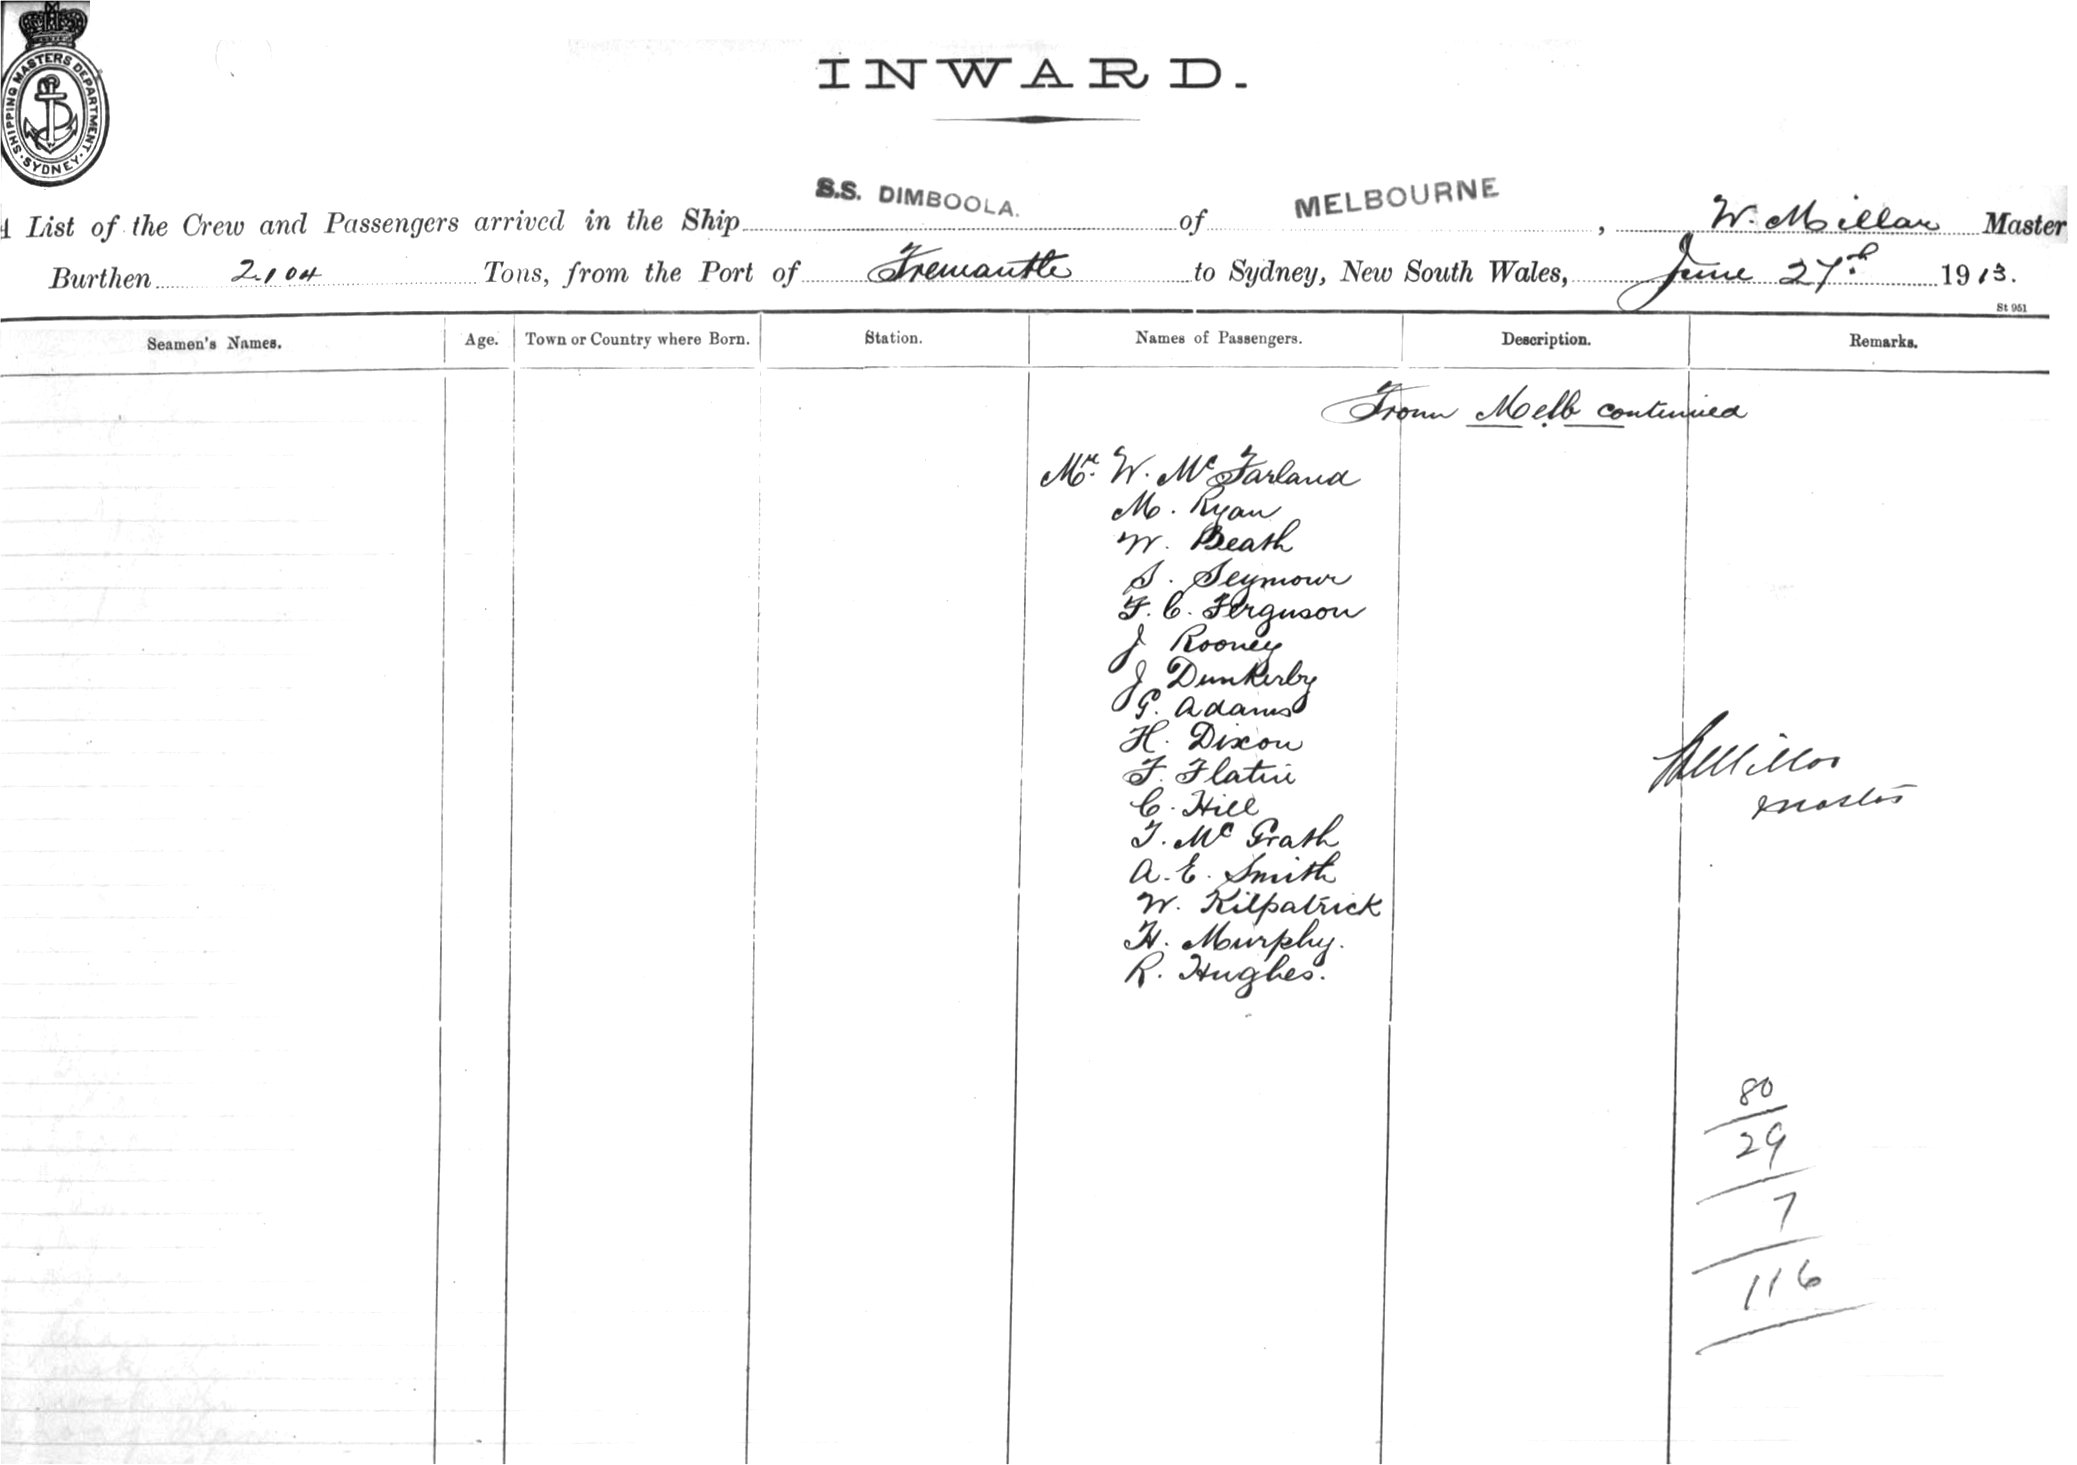 SHIPPING MASTERS DEPARTMENT
SYDNEY
INWARD.
List of the Crew and Passengers arrived in the Ship S.S. DIMBOOLA. of MELBOURNE, W. Millar Master
Burthen 2104 Tons, from the Port of Fremantle to Sydney, New South Wales, June 27th 1913.
St 951
Seamen's Names. Age. Town or Country where Born. Station. Names of Passengers. Description. Remarks.
From Melb continued
Mr. W. McFarland
M. Ryan
W. Beath
S. Seymour
F. C. Ferguson
J Rooney
J Dunkerby
G. Adams
H. Dixon
F. Flatin
C. Hill
T. McGrath
A. E. Smith
W. Kilpatrick
H. Murphy.
R. Hughes.
W Millar
master
80
29
7
116